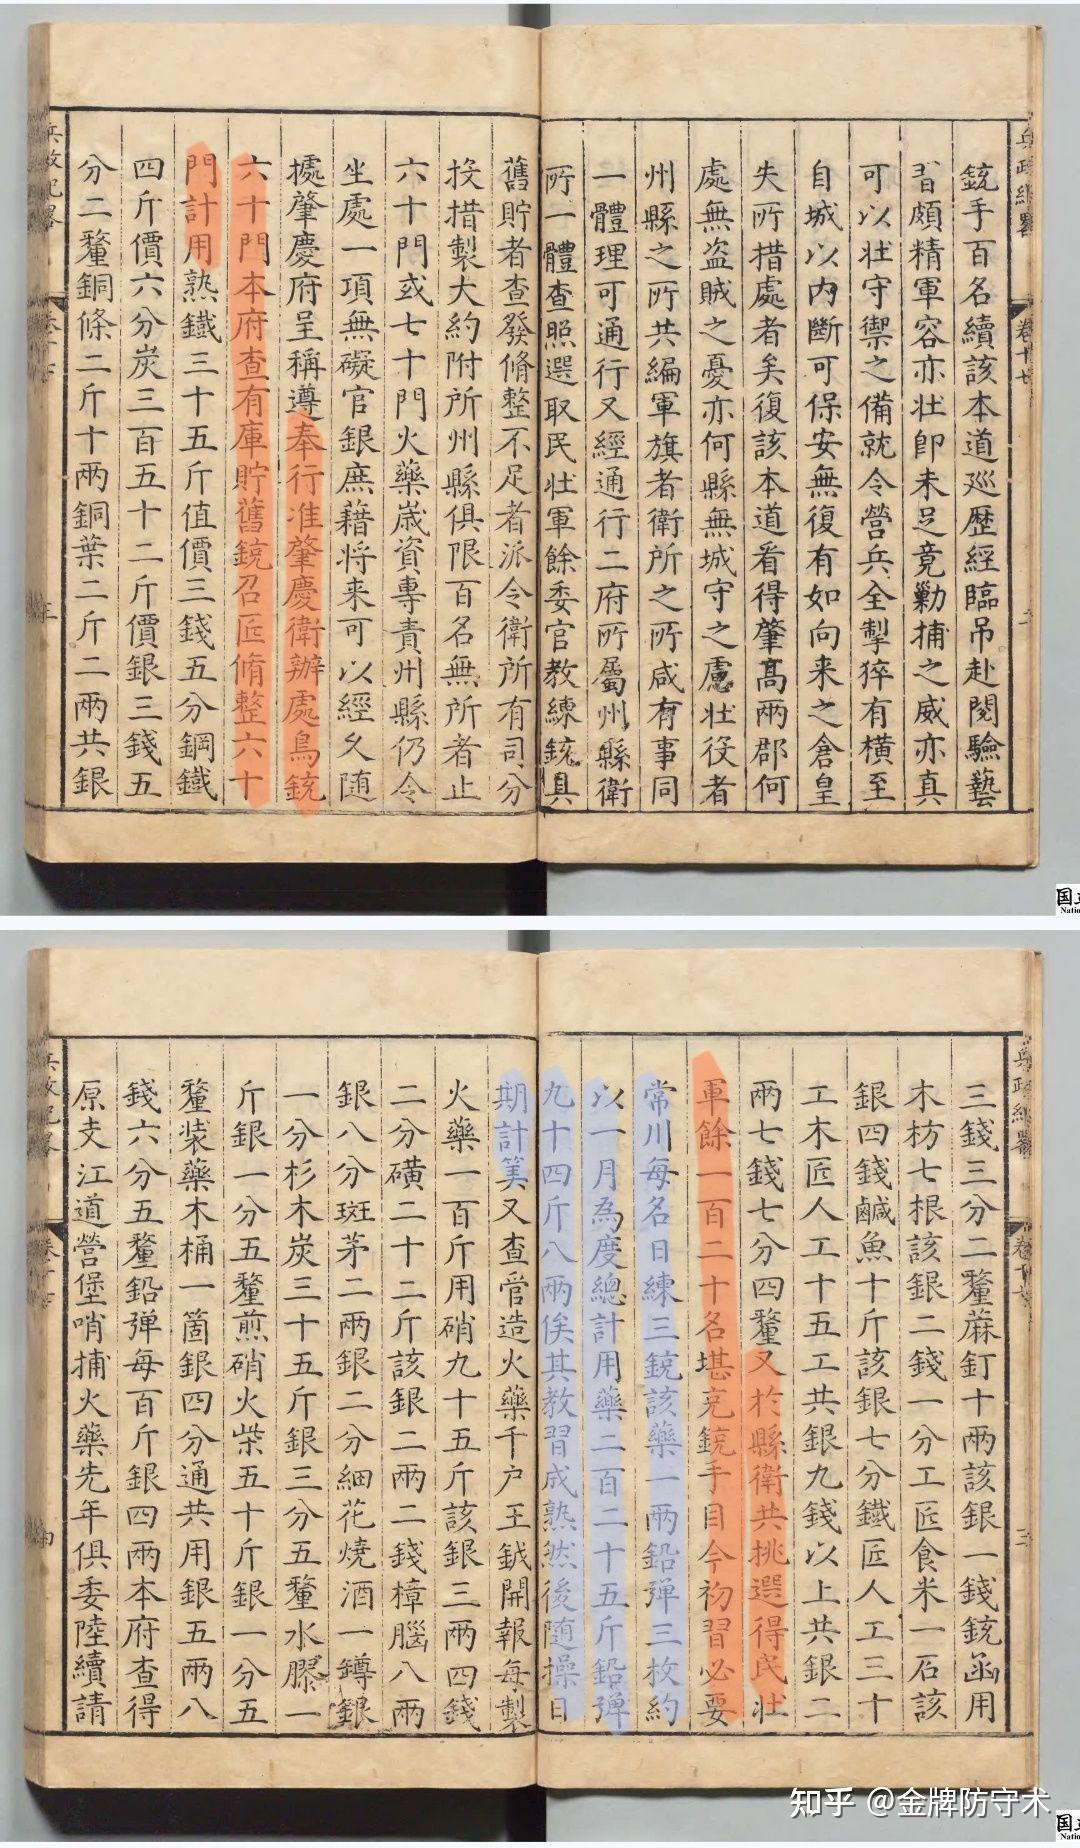 兵政紀畧
卷十七
銃手百名續該本道巡歷經臨吊赴閱驗藝
習頗精軍容亦壯卽未足竟勦捕之威亦真
可以壯守禦之備就令營兵全掣猝有橫至
自城以內斷可保安無復有如向来之倉皇
失所措處者矣復該本道看得肇高兩郡何
處無盜賊之憂亦何縣無城守之慮壯役者
州縣之所共編軍旗者衛所之所咸有事同
一體理可通行又經通行二府所屬州縣衛
所一體查照選取民壯軍餘委官教練銃具
舊貯者查發脩整不足者派令衛所有司分
投措製大約附所州縣俱限百名無所者止
六十門或七十門火藥歲資專責州縣仍令
坐處一項無礙官銀庶藉将来可以經久随
據肇慶府呈稱遵奉行准肇慶衛辦處鳥銃
六十門本府查有庫貯舊銃召匠脩整六十
門計用熟鐵三十五斤值價三錢五分鋼鐵
四斤價六分炭三百五十二斤價銀三錢五
分二釐銅條二斤十兩銅葉二斤二兩共銀
兵政紀畧
国立
兵政紀畧
三錢三分二釐蔴釘十兩該銀一錢銃函用
木枋七根該銀二錢一分工匠食米一石該
銀四錢鹹魚十斤該銀七分鐵匠人工三十
工木匠人工十五工共銀九錢以上共銀二
兩七錢七分四釐又於縣衛共挑選得民壯
軍餘一百二十名堪充銃手目今初習必要
常川每名日練三銃該藥一兩鉛弹三枚約
以一月為度總計用藥二百二十五斤鉛弹
九十四斤八兩俟其教習成熟然後随操日
期計筭又查營造火藥千户王鉞開報每製
火藥一百斤用硝九十五斤該銀三兩四錢
二分磺二十二斤該銀二兩二錢樟腦八兩
銀八分斑茅二兩銀二分細花燒酒一罇銀
一分杉木炭三十五斤銀三分五釐水膠一
斤銀一分五釐煎硝火柴五十斤銀一分五
釐装藥木桶一箇銀四分通共用銀五兩八
錢六分五釐鉛弹每百斤銀四兩本府查得
原支江道營堡哨捕火藥先年俱委陸續請
兵政紀畧
知乎 @金牌防守术
国立